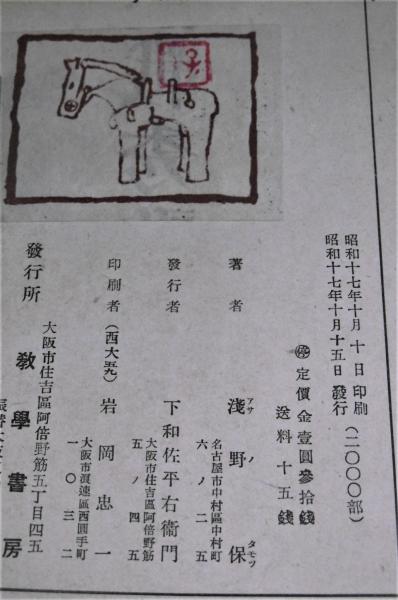 昭和十七年十月十日 印刷 (二〇〇〇部)
昭和十七年十月十五日 發行
㊞ 定價 金壹圓參拾錢
送料 十五錢
著者 淺野 保
アサノ タモツ
名古屋市中村區中村町
六ノ二五
發行者 下和佐平右衞門
大阪市住吉區阿倍野筋
五ノ四五
印刷者 (西大五九) 岩岡忠一
大阪市浪速區西圓手町
一〇三二
發行所 敎學書房
大阪市住吉區阿倍野筋五丁目四五